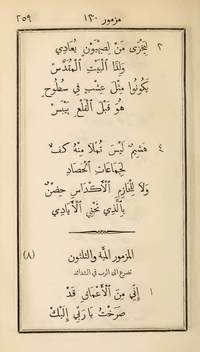 مزمور ١٣٠ ٢٥٩
٣ لِيَخْزَى مَنْ لِصِهْيَوْنٍ يُعَادِي
وَلِذَا الْبَيْتِ الْمُقَدَّسْ
يَكُونُوا مِثْلَ عِشْبٍ فِي سُطُوحٍ
هُوَ قَبْلَ الْقَلْعِ يَيْبَسْ
٤ هَشِيمٌ لَيْسَ تُمْلَا مِنْهُ كَفٌّ
لِجَمَاعَاتِ الْحَصَادِ
وَلَا لِلْحَازِمِ الْأَكْدَاسِ حِضْنٌ
بِالَّذِي تَجْنِي الْأَيَادِي
المزمور المئة والثلثون (٨)
تضرع الى الرب في الشدائد
١ إِنِّي مِنَ الْأَعْمَاقِ قَدْ
صَرَخْتُ يَا رَبِّي إِلَيْكْ